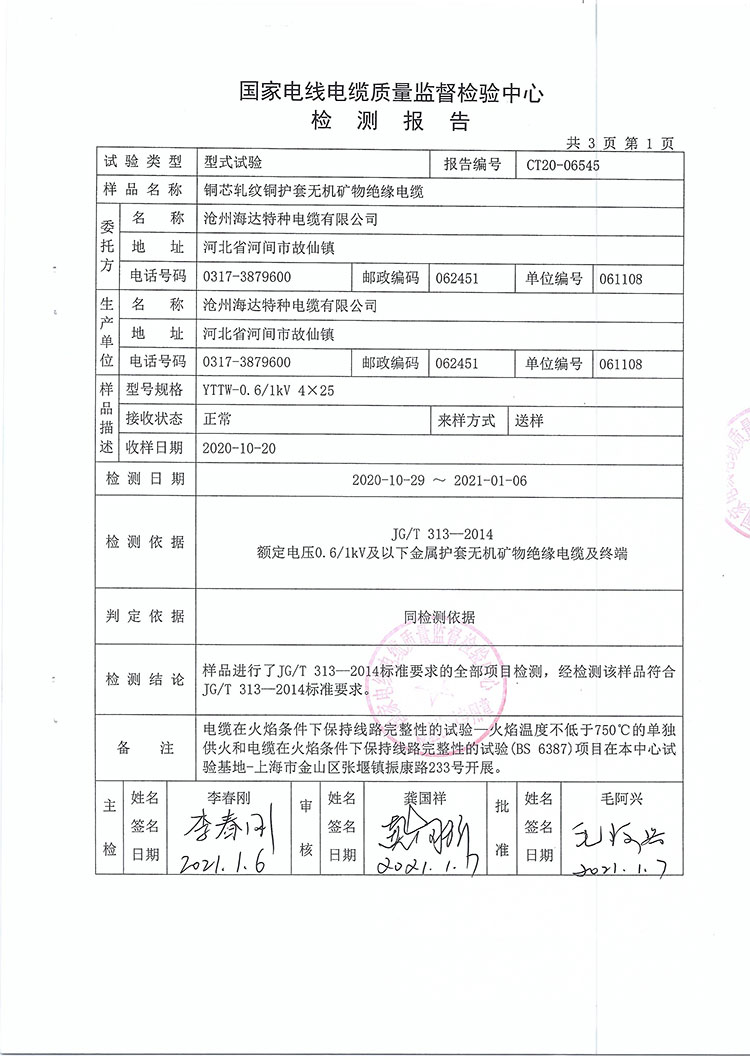 国家电线电缆质量监督检验中心
检 测 报 告
共 3 页 第 1 页
试验类型 型式试验 报告编号 CT20-06545
样品名称 铜芯轧纹铜护套无机矿物绝缘电缆
委托方
名 称 沧州海达特种电缆有限公司
地 址 河北省河间市故仙镇
电话号码 0317-3879600 邮政编码 062451 单位编号 061108
生产单位
名 称 沧州海达特种电缆有限公司
地 址 河北省河间市故仙镇
电话号码 0317-3879600 邮政编码 062451 单位编号 061108
样品描述
型号规格 YTTW-0.6/1kV 4×25
接收状态 正常 来样方式 送样
收样日期 2020-10-20
检测日期 2020-10-29 ～ 2021-01-06
检测依据
JG/T 313—2014
额定电压0.6/1kV及以下金属护套无机矿物绝缘电缆及终端
判定依据 同检测依据
检测结论
样品进行了JG/T 313—2014标准要求的全部项目检测，经检测该样品符合
JG/T 313—2014标准要求。
备 注
电缆在火焰条件下保持线路完整性的试验—火焰温度不低于750℃的单独
供火和电缆在火焰条件下保持线路完整性的试验(BS 6387)项目在本中心试
验基地-上海市金山区张堰镇振康路233号开展。
主检 姓名 李春刚 审核 姓名 龚国祥 批准 姓名 毛阿兴
签名 李春刚 签名 龚国祥 签名 毛阿兴
日期 2021.1.6 日期 2021.1.7 日期 2021.1.7